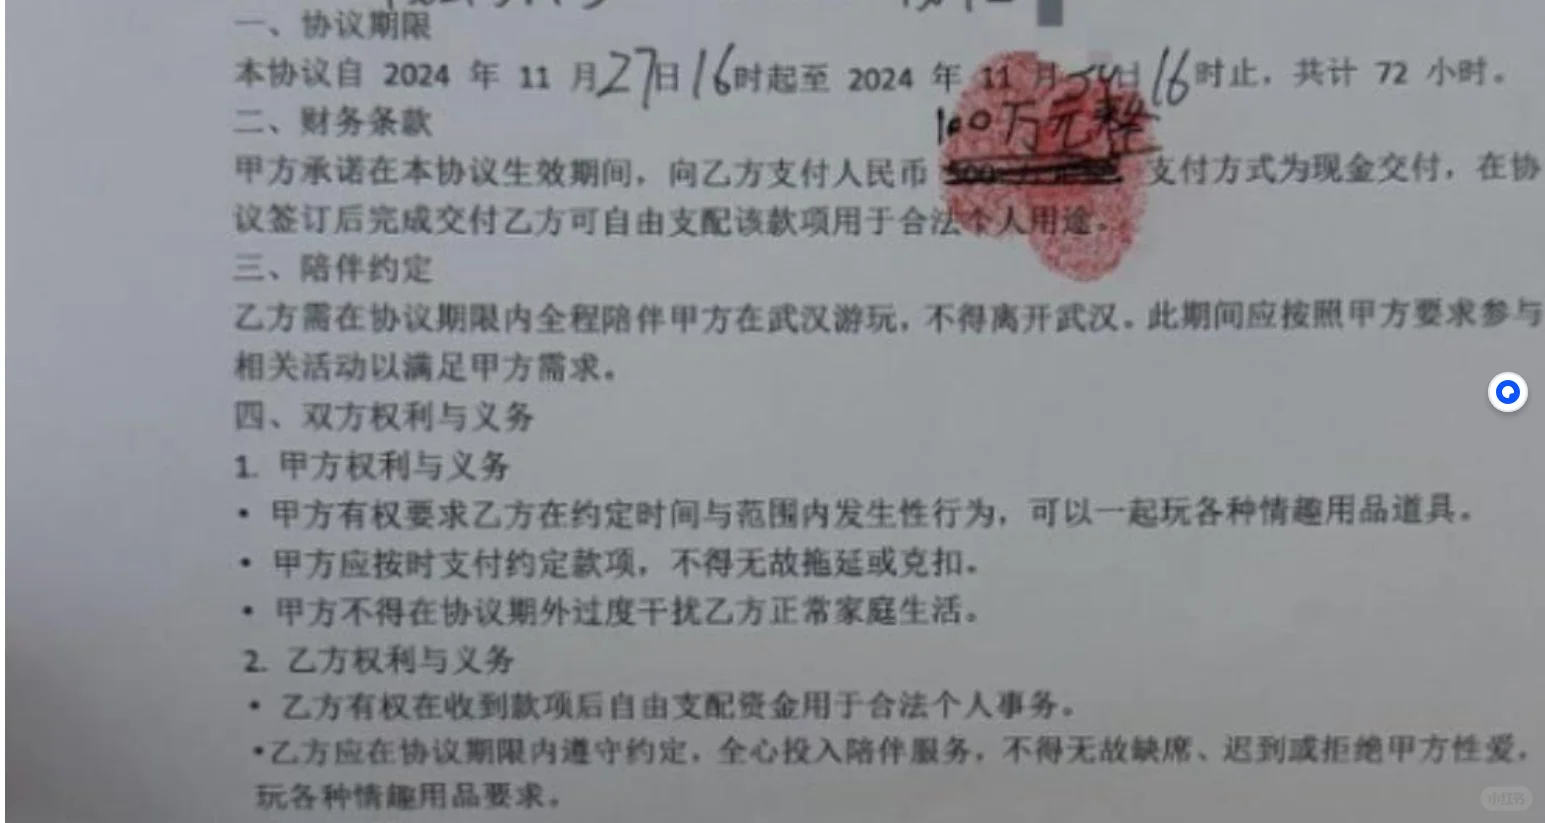 一、协议期限
本协议自 2024 年 11 月27日16时起至 2024 年 11 月 日16时止，共计 72 小时。
100万元整
二、财务条款
甲方承诺在本协议生效期间，向乙方支付人民币 支付方式为现金交付，在协
议签订后完成交付乙方可自由支配该款项用于合法个人用途。
三、陪伴约定
乙方需在协议期限内全程陪伴甲方在武汉游玩，不得离开武汉。此期间应按照甲方要求参与
相关活动以满足甲方需求。
四、双方权利与义务
1. 甲方权利与义务
• 甲方有权要求乙方在约定时间与范围内发生性行为，可以一起玩各种情趣用品道具。
• 甲方应按时支付约定款项，不得无故拖延或克扣。
• 甲方不得在协议期外过度干扰乙方正常家庭生活。
2. 乙方权利与义务
• 乙方有权在收到款项后自由支配资金用于合法个人事务。
•乙方应在协议期限内遵守约定，全心投入陪伴服务，不得无故缺席、迟到或拒绝甲方性爱，
玩各种情趣用品要求。
小红书